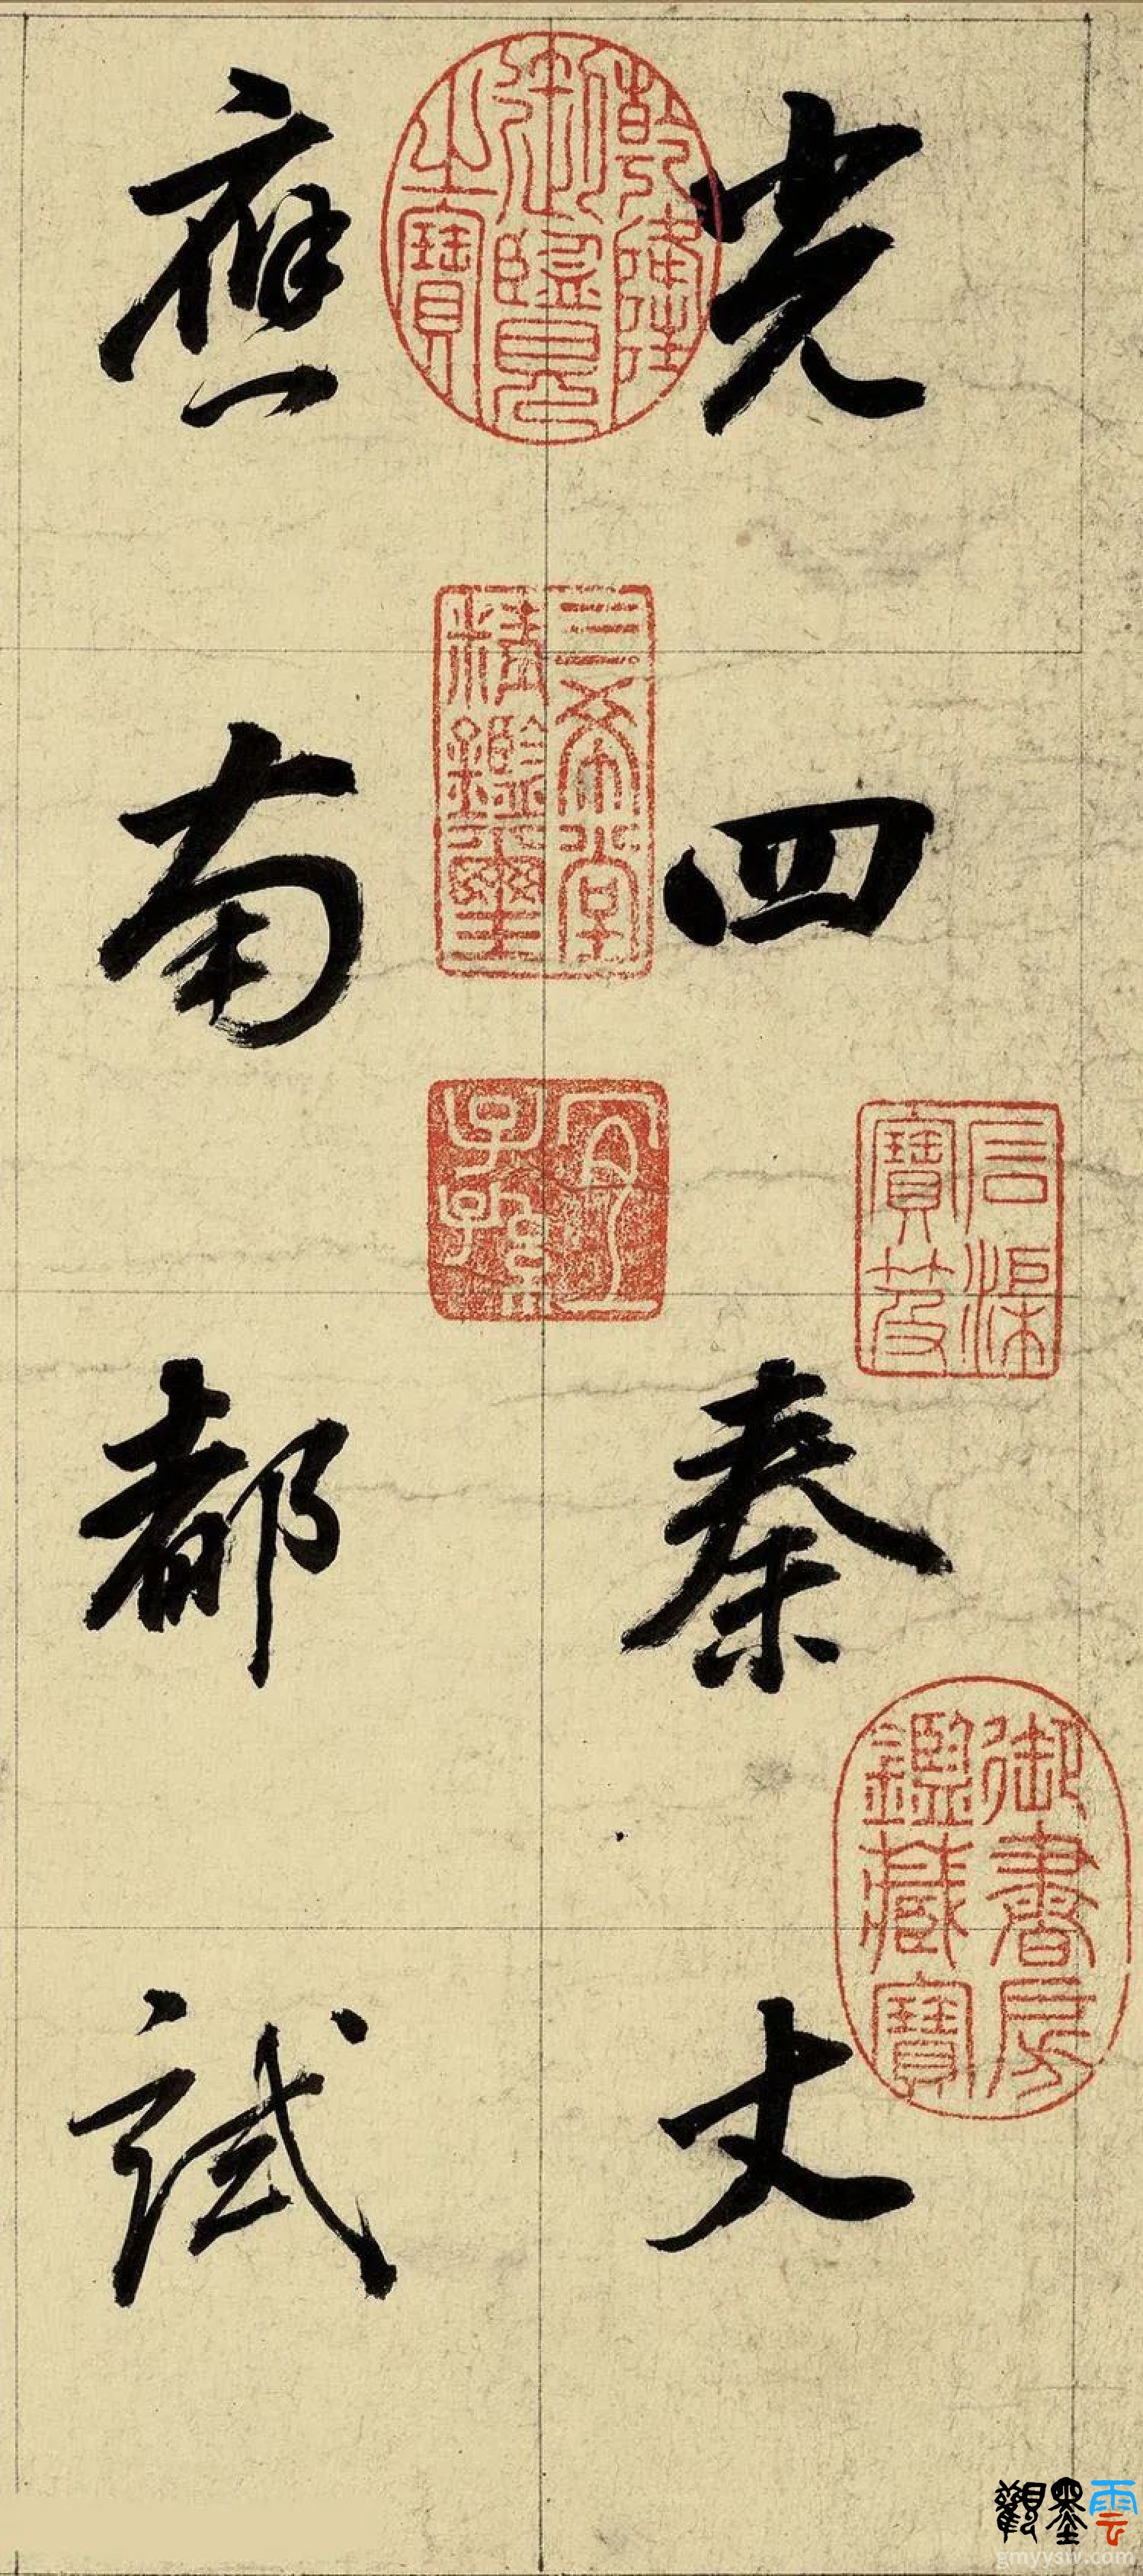 光四秦丈
應南都試
乾隆御覽之寶
三希堂精鑑璽
宜子孫
石渠寶笈
御書房鑑藏寶
觀墨雲
gmyysw.com